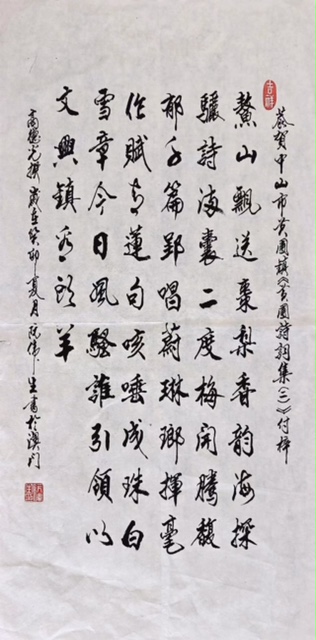 吉祥
恭賀中山市黃圃鎮《黃圃詩詞集(三)》付梓
鰲山飄送棗梨香韵海探
驪詩滿囊二度梅開騰馥
郁千篇郢唱蔚琳瑯揮毫
作賦青蓮句咳唾成珠白
雪章今日風騷誰引領以
文興鎮看頭羊
高德光撰歲在癸卯夏月阮偉生書於澳門